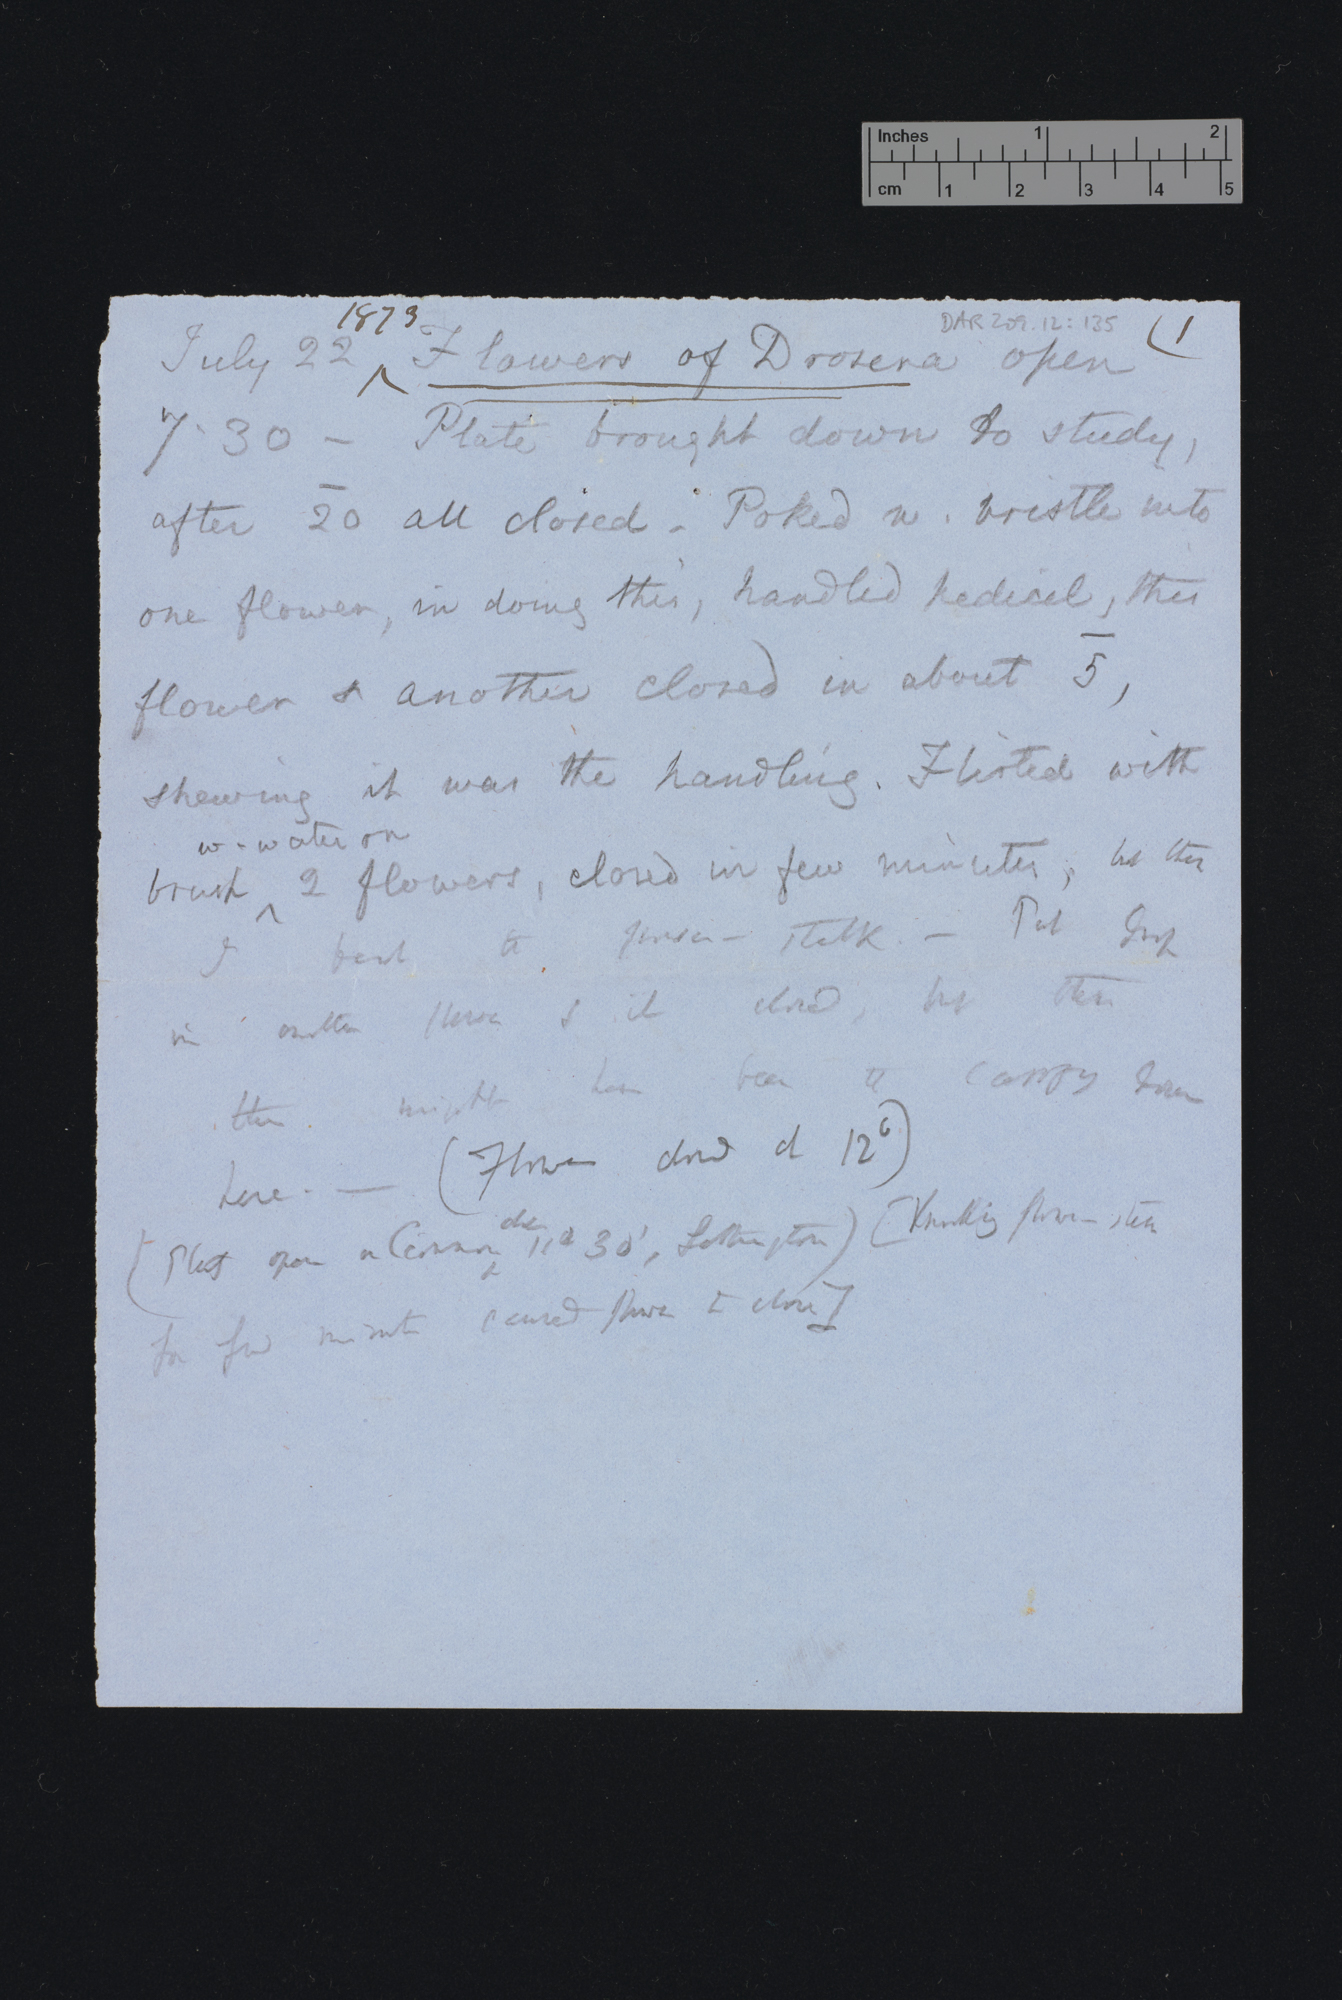 Inches 1 2
cm 1 2 3 4 5
DAR 209.12: 135
(1
1873
July 22 ^ Flowers of Drosera open
7.30 – Plate brought down to study,
after 20 all closed – Poked w. bristle into
one flower, in doing this, handled pedicel, this
flower & another closed in about 5,
shewing it was the handling. Flirted with
w. water on
brush ^ 2 flowers, closed in few minutes, but then
I bent the flower-stalk. – Put drop
in another flower & it closed, but then
this might have been the carrying down
here. — (Flowers closed at 12
(Plants open on Common 11 30', ) [Knocking flower stem
for few minutes caused flower to close]